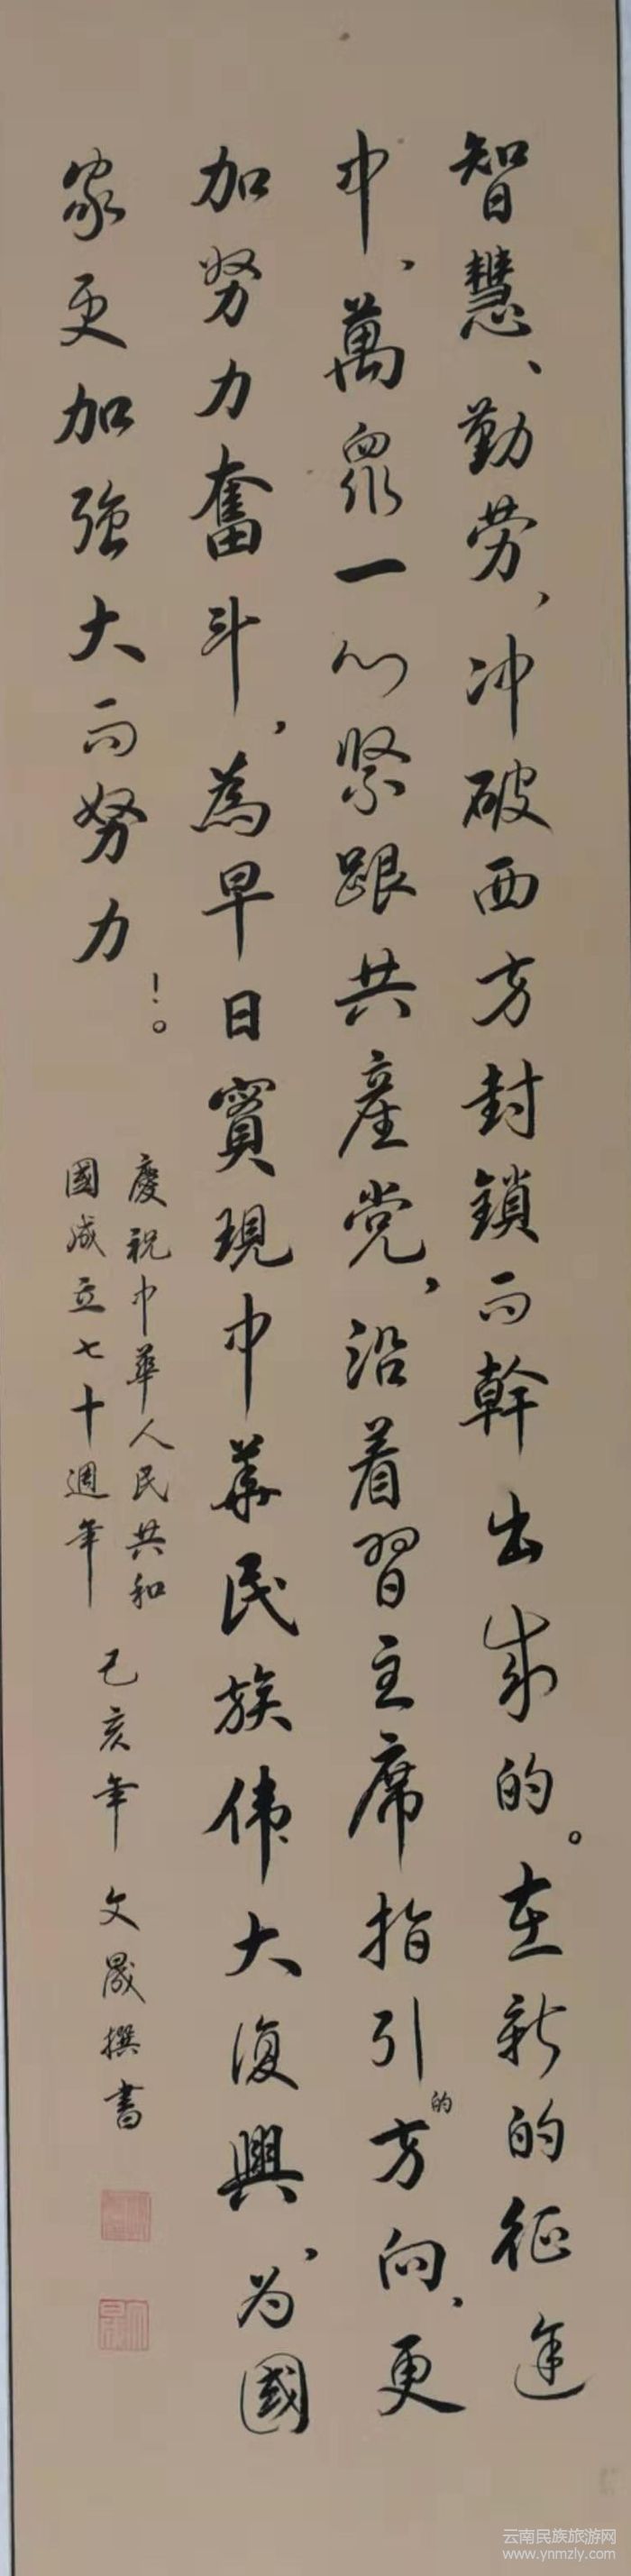 智慧、勤劳，冲破西方封鎖而幹出来的。在新的征途
中，萬眾一心紧跟共產党，沿着習主席指引的方向，更
加努力奮斗，為早日實現中華民族伟大復興，为國
家更加強大而努力！。
慶祝中華人民共和
國成立七十週年
己亥年 文晟撰書
云南民族旅游网
www.ynmzly.com